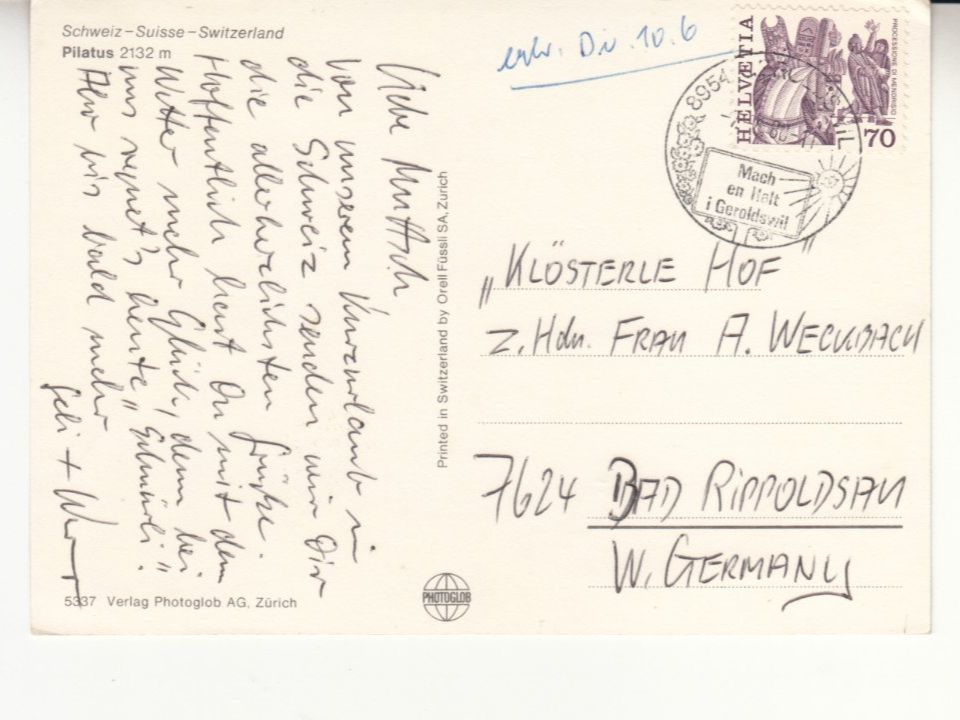 Schweiz – Suisse – Switzerland
Pilatus 2132 m
Liebe Muttsch
von unserem Kurzurlaub in
die Schweiz senden wir Dir
die allerherzlichsten Grüße.
Hoffentlich hast Du mit dem
Wetter mehr Glück, denn bei
uns regnet's heute "Schnürli."
Aber bis bald mehr
Geli +
5337 Verlag Photoglob AG, Zürich
Printed in Switzerland by Orell Füssli SA, Zürich
PHOTOGLOB
erh. Di. 10.6
HELVETIA
PROCESSIONE DI MENDRISIO
70
8954
Mach
en Halt
i Geroldswil
"KLÖSTERLE HOF"
z. Hdn. FRAU A. WECKBACH
7624 BAD RIPPOLDSAU
W. GERMANY